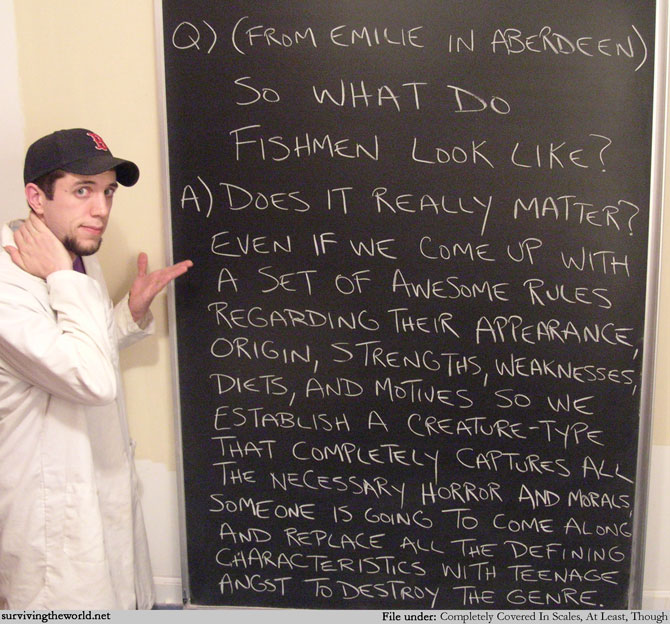 Q) (FROM EMILIE IN ABERDEEN)
SO WHAT DO
FISHMEN LOOK LIKE?
A) DOES IT REALLY MATTER?
EVEN IF WE COME UP WITH
A SET OF AWESOME RULES
REGARDING THEIR APPEARANCE,
ORIGIN, STRENGTHS, WEAKNESSES,
DIETS, AND MOTIVES SO WE
ESTABLISH A CREATURE-TYPE
THAT COMPLETELY CAPTURES ALL
THE NECESSARY HORROR AND MORALS,
SOMEONE IS GOING TO COME ALONG
AND REPLACE ALL THE DEFINING
CHARACTERISTICS WITH TEENAGE
ANGST TO DESTROY THE GENRE.
B
survivingtheworld.net
File under: Completely Covered In Scales, At Least, Though